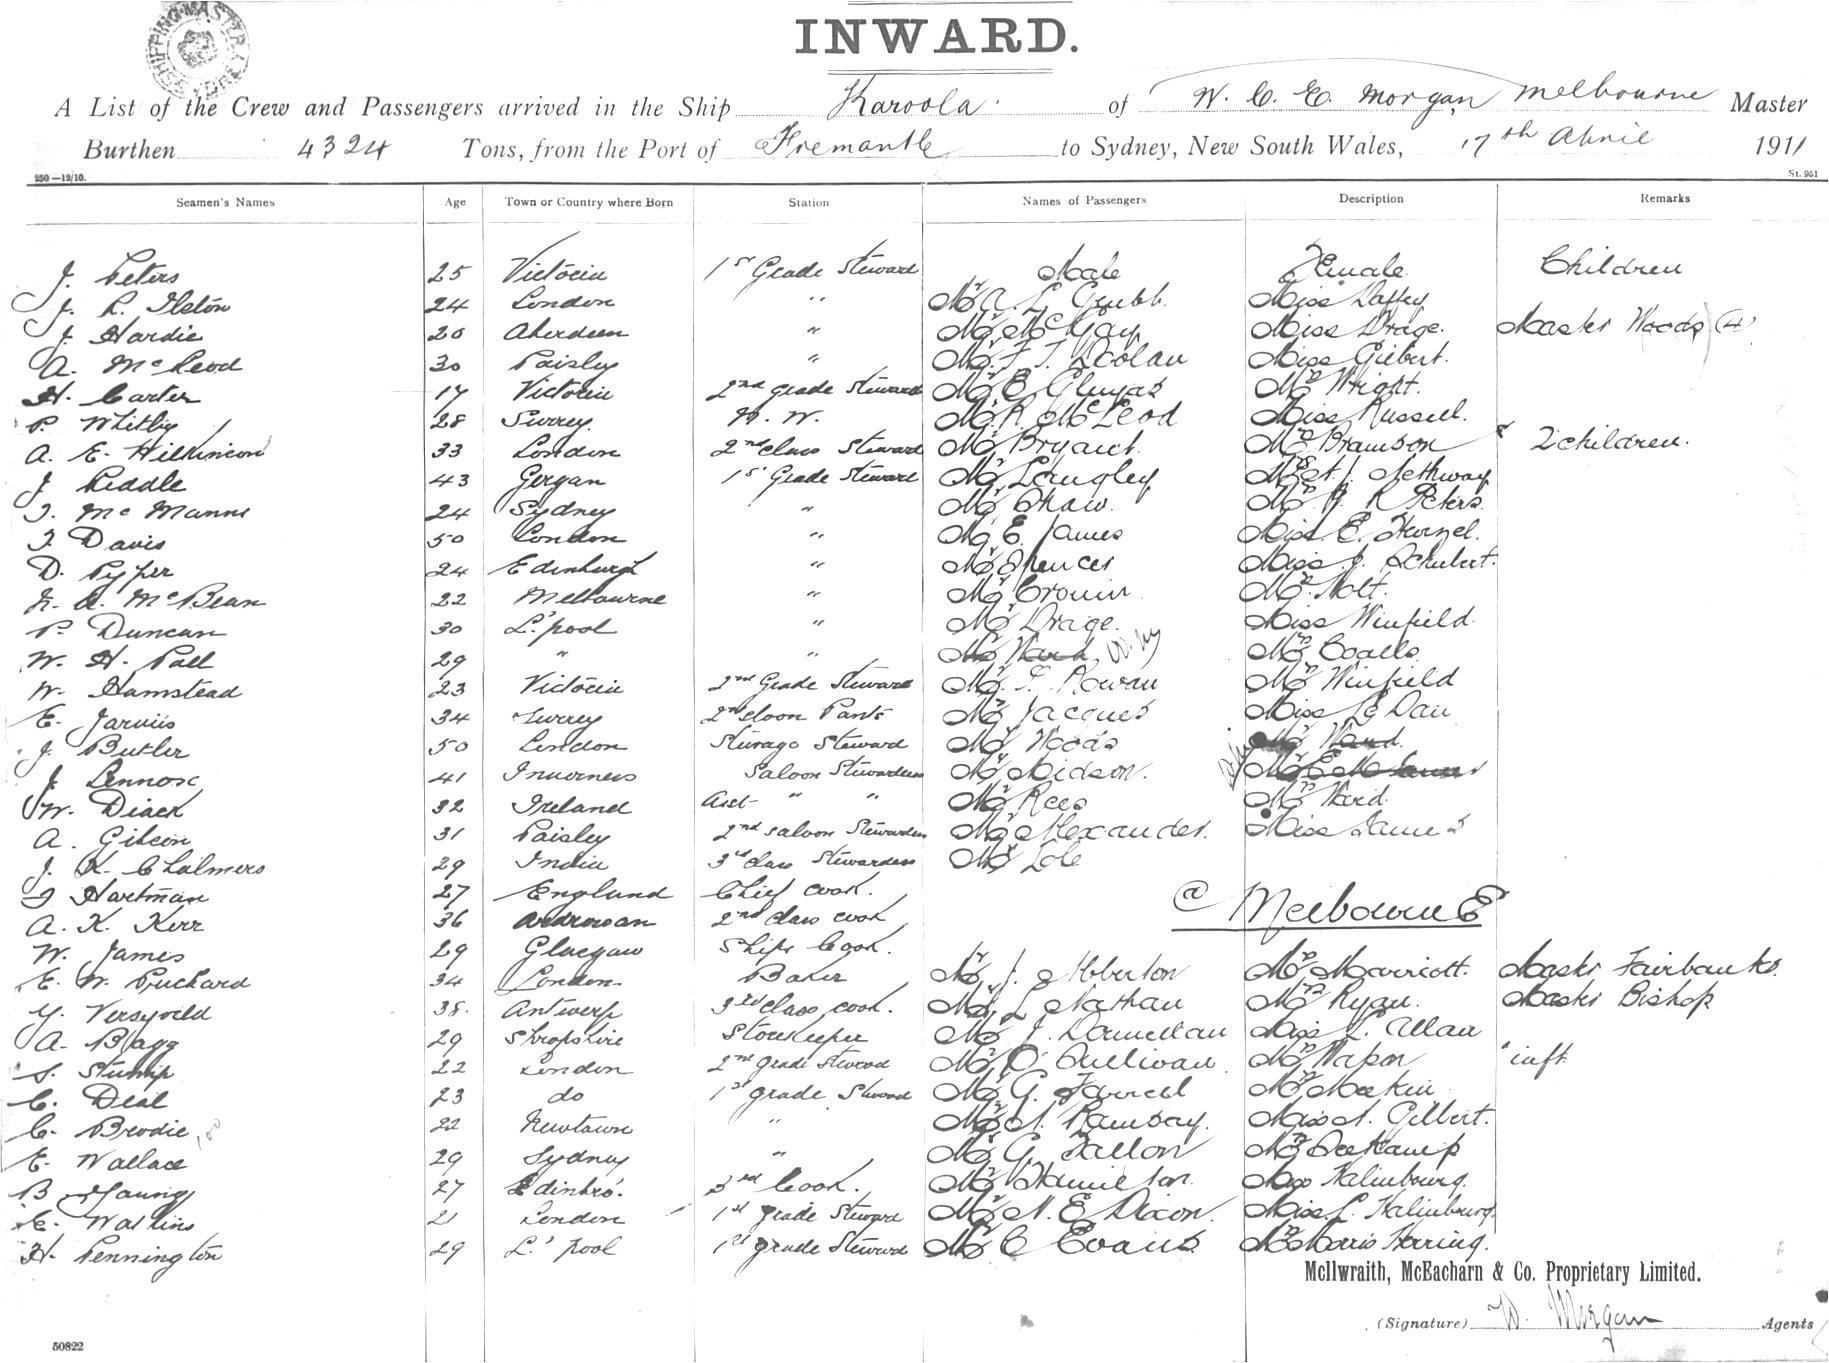 SHIPPING MASTER
INWARD.
A List of the Crew and Passengers arrived in the Ship Karoola. of W. C. E. Morgan, Melbourne Master
Burthen 4324 Tons, from the Port of Fremantle to Sydney, New South Wales, 17th April 1911
250—12/10. St. 951
Seamen's Names Age Town or Country where Born Station Names of Passengers Description Remarks
J. Peters 25 Victoria 1st Grade Steward Male Female Children
24 London " Mr A. L. Grubb. Miss Daffey
J. Hardie 20 Aberdeen " Mr McKay Miss Drage. Master Woods (4)
A. McLeod 30 Paisley " Mr F. T. Miss Gilbert.
H. Carter 17 Victoria 2nd grade Steward Mr E. Gluyas Mrs Wright.
P. Whitby 28 Surrey. Mr R. McLeod Miss Russell.
A. E. Wilkinson 33 London 2nd class Steward Mr Bryant. Mrs Bramson & 2 children.
J. Liddle 43 1st Grade Steward Mr Langley
J. McManns 24 Sydney " Mr Shaw. Mrs R. Peters.
J. Davis 50 London " Mr E. James Miss E.
D. Pyper 24 Edinburgh " Mr Spencer Miss J. Schubert.
A. McBean 22 Melbourne " Mr Cronin Mrs Holt.
P. Duncan 30 L.'pool " Mr Drage. Miss Winfield
W. H. Pall 29 " " Mr Ward Mrs Coalls
W. Hamstead 23 Victoria 2nd Grade Steward Mr F. Rowan Mrs Winfield
E. Jarvis 34 Surrey Mr Jacques Miss
J. Butler 50 London Steward Mr Woods Mrs Ward.
J. Lennox 41 Inverness Saloon Stewardess Mr Midson.
W. Diack 32 Ireland Asst " " Mr Rees Mrs Ward.
A. Gibson 31 Paisley 2nd saloon Stewardess Mr Alexander. Miss James
J. K. Chalmers 29 India 3rd class Stewardess Mr Lole
J. Hartman 27 England Chief cook.
@ Melbourne
A. K. Kerr 36 Ardrossan 2nd class cook
W. James 29 Glasgow Ships Cook.
E. W. Puckard 34 London Baker Mr J. Mrs Marriott. Master Fairbanks.
Y. Versyveld 38. Antwerp 3rd class cook. Mr L. Nathan Mrs Ryan. Master Bishop
A. Bagg 29 Shropshire Storekeeper Mr J. Donnellan Miss L. Allan
22 London 2nd grade Steward Mr O'Sullivan Mrs inft
C. Deal 23 do 1st grade Steward Mr G. Farrell Mrs Meekin
C. Brodie 22 Newtown " Mr A. Ramsay. Miss A. Gilbert.
E. Wallace 29 Sydney " Mr G. Fallon Mrs
B. Young 27 Edinbro'. 3rd Cook. Mr Hamilton. Kalinbourg.
C. Watkins 21 London 1st grade Steward Mr N. E. Dixon. Miss L. Kalinbourg.
H. Pennington 29 L.'pool 1st grade Steward Mr C. Evans Mrs Morris Herring.
McIlwraith, McEacharn & Co. Proprietary Limited.
(Signature) W. Morgan Agents
50822